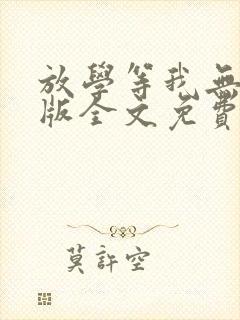 放學等我無
版全文免費
莫許空